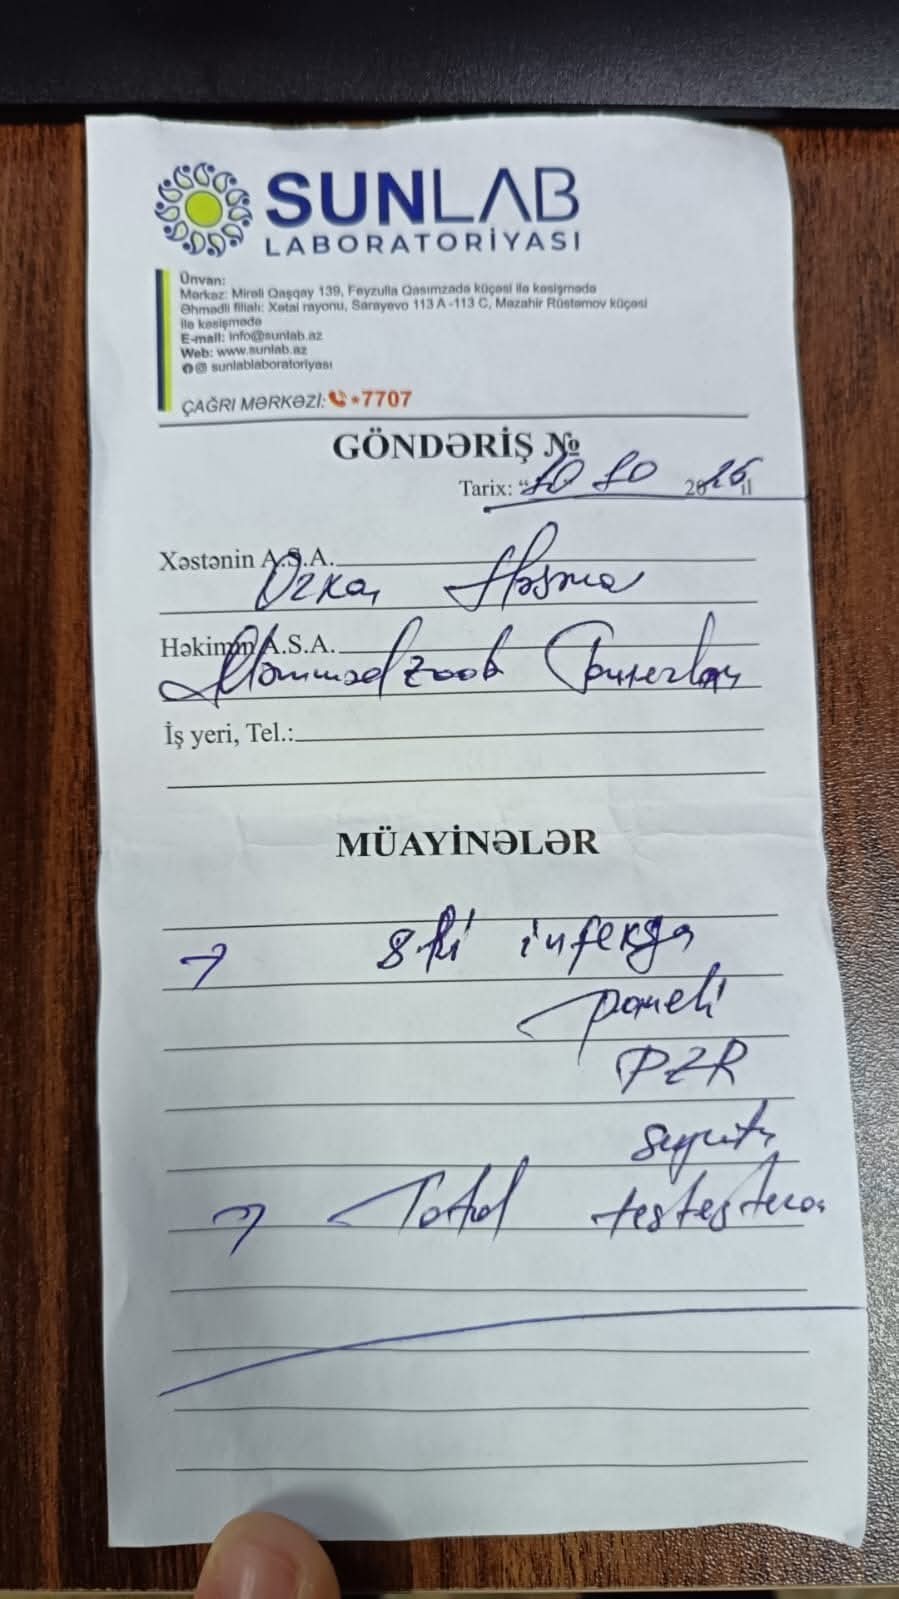 SUNLAB
LABORATORİYASI
Ünvan:
Mərkəz: Mirəli Qaşqay 139, Feyzulla Qasımzadə küçəsi ilə kəsişmədə
Əhmədli filialı: Xətai rayonu, Sarayevo 113 A -113 C, Məzahir Rüstəmov küçəsi
ilə kəsişmədə
E-mail: info@sunlab.az
Web: www.sunlab.az
sunlablaboratoriyası
ÇAĞRI MƏRKƏZİ: *7707
GÖNDƏRİŞ №
Tarix: “10 10 20
Xəstənin A.S.A.
Özkan
Həkimin A.S.A.
İş yeri, Tel.:
MÜAYİNƏLƏR
8 li infeksya
paneli
PZR
Total